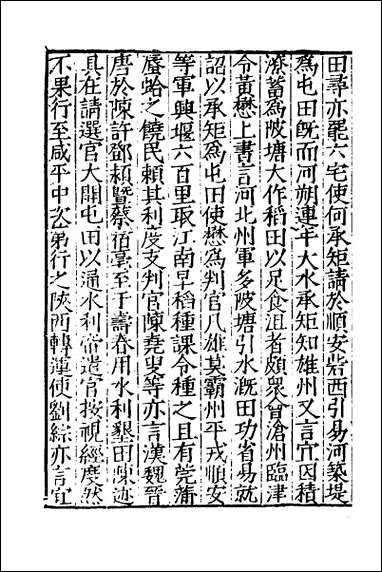 田尋亦罷六宅使何承矩請於順安砦西引易河築堤
爲屯田旣而河朔連年大水承矩知雄州又言宜因積
潦蓄爲陂塘大作稻田以足食沮者頗衆會滄州臨津
令黃懋上書言河北州軍多陂塘引水漑田功省易就
詔以承矩爲屯田使懋爲判官凡雄莫霸州平戎順安
等軍興堰六百里取江南早稻種課令種之且有莞蒲
蜃蛤之饒民賴其利度支判官陳堯叟等亦言漢魏晉
唐於陳許鄧潁曁蔡宿亳至于壽春用水利墾田陳迹
具在請選官大開屯田以通水利帝遣官按視經度然
不果行至咸平中次苐行之陝西轉運使劉綜亦言宜